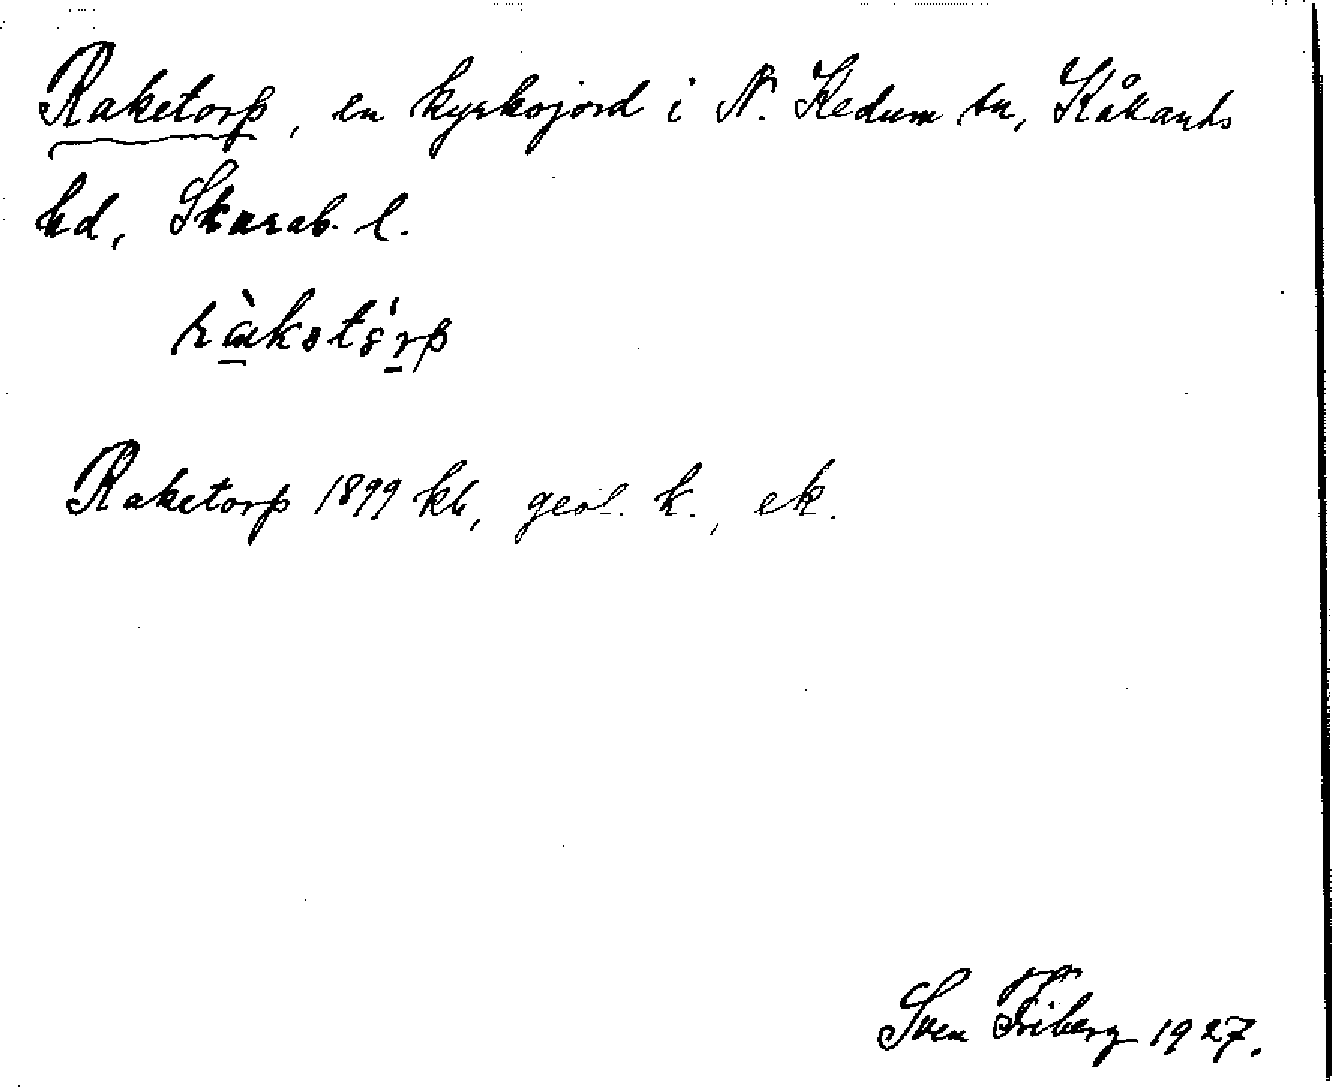 Raketorp, en kyrkojord i N. Kedum sn, Kåkands
hd, Skarab. l.
Raketorp 1899 kb, geol. k., ek.
Sven Friberg 1927.